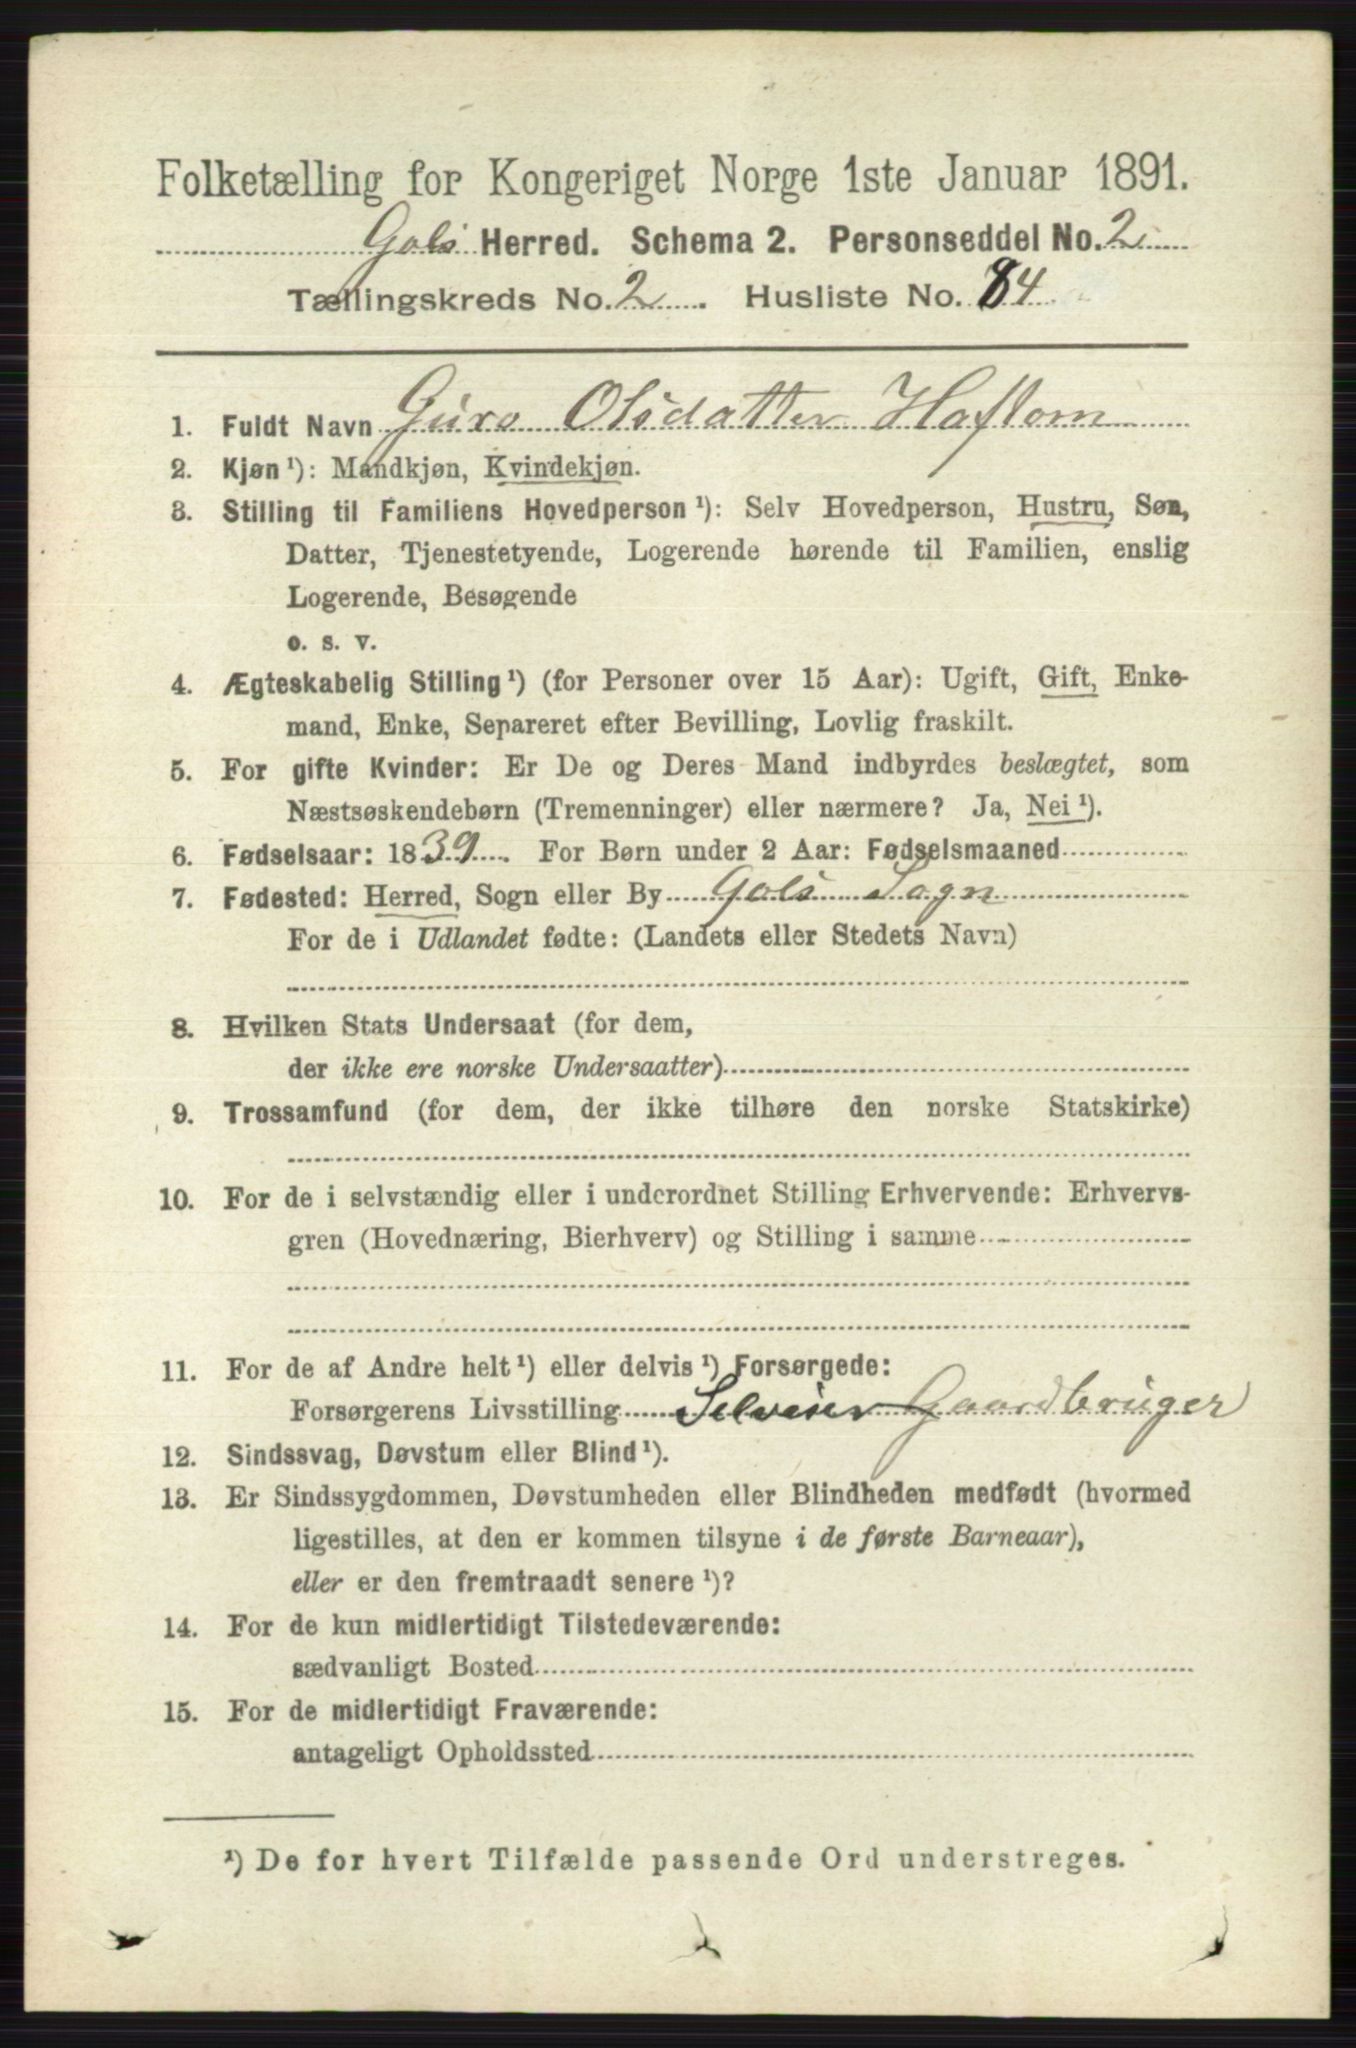 Folketælling for Kongeriget Norge 1ste Januar 1891.
Gols Herred. Schema 2. Personseddel No. 2
Tællingskreds No. 2. Husliste No. 84
1. Fuldt Navn Guro Olsdatter Haftorn
2. Kjøn ¹): Mandkjøn, Kvindekjøn.
3. Stilling til Familiens Hovedperson ¹): Selv Hovedperson, Hustru, Søn,
Datter, Tjenestetyende, Logerende hørende til Familien, enslig
Logerende, Besøgende
o. s. v.
4. Ægteskabelig Stilling ¹) (for Personer over 15 Aar): Ugift, Gift, Enke-
mand, Enke, Separeret efter Bevilling, Lovlig fraskilt.
5. For gifte Kvinder: Er De og Deres Mand indbyrdes beslægtet, som
Næstsøskendebørn (Tremenninger) eller nærmere? Ja, Nei ¹).
6. Fødselsaar: 1839. For Børn under 2 Aar: Fødselsmaaned
7. Fødested: Herred, Sogn eller By Gols Sogn
For de i Udlandet fødte: (Landets eller Stedets Navn)
8. Hvilken Stats Undersaat (for dem,
der ikke ere norske Undersaatter)
9. Trossamfund (for dem, der ikke tilhøre den norske Statskirke)
10. For de i selvstændig eller i underordnet Stilling Erhvervende: Erhvervs-
gren (Hovednæring, Bierhverv) og Stilling i samme
11. For de af Andre helt ¹) eller delvis ¹) Forsørgede:
Forsørgerens Livsstilling Selveier Gaardbruger
12. Sindssvag, Døvstum eller Blind ¹).
13. Er Sindssygdommen, Døvstumheden eller Blindheden medfødt (hvormed
ligestilles, at den er kommen tilsyne i de første Barneaar),
eller er den fremtraadt senere ¹)?
14. For de kun midlertidigt Tilstedeværende:
sædvanligt Bosted
15. For de midlertidigt Fraværende:
antageligt Opholdssted
¹) De for hvert Tilfælde passende Ord understreges.